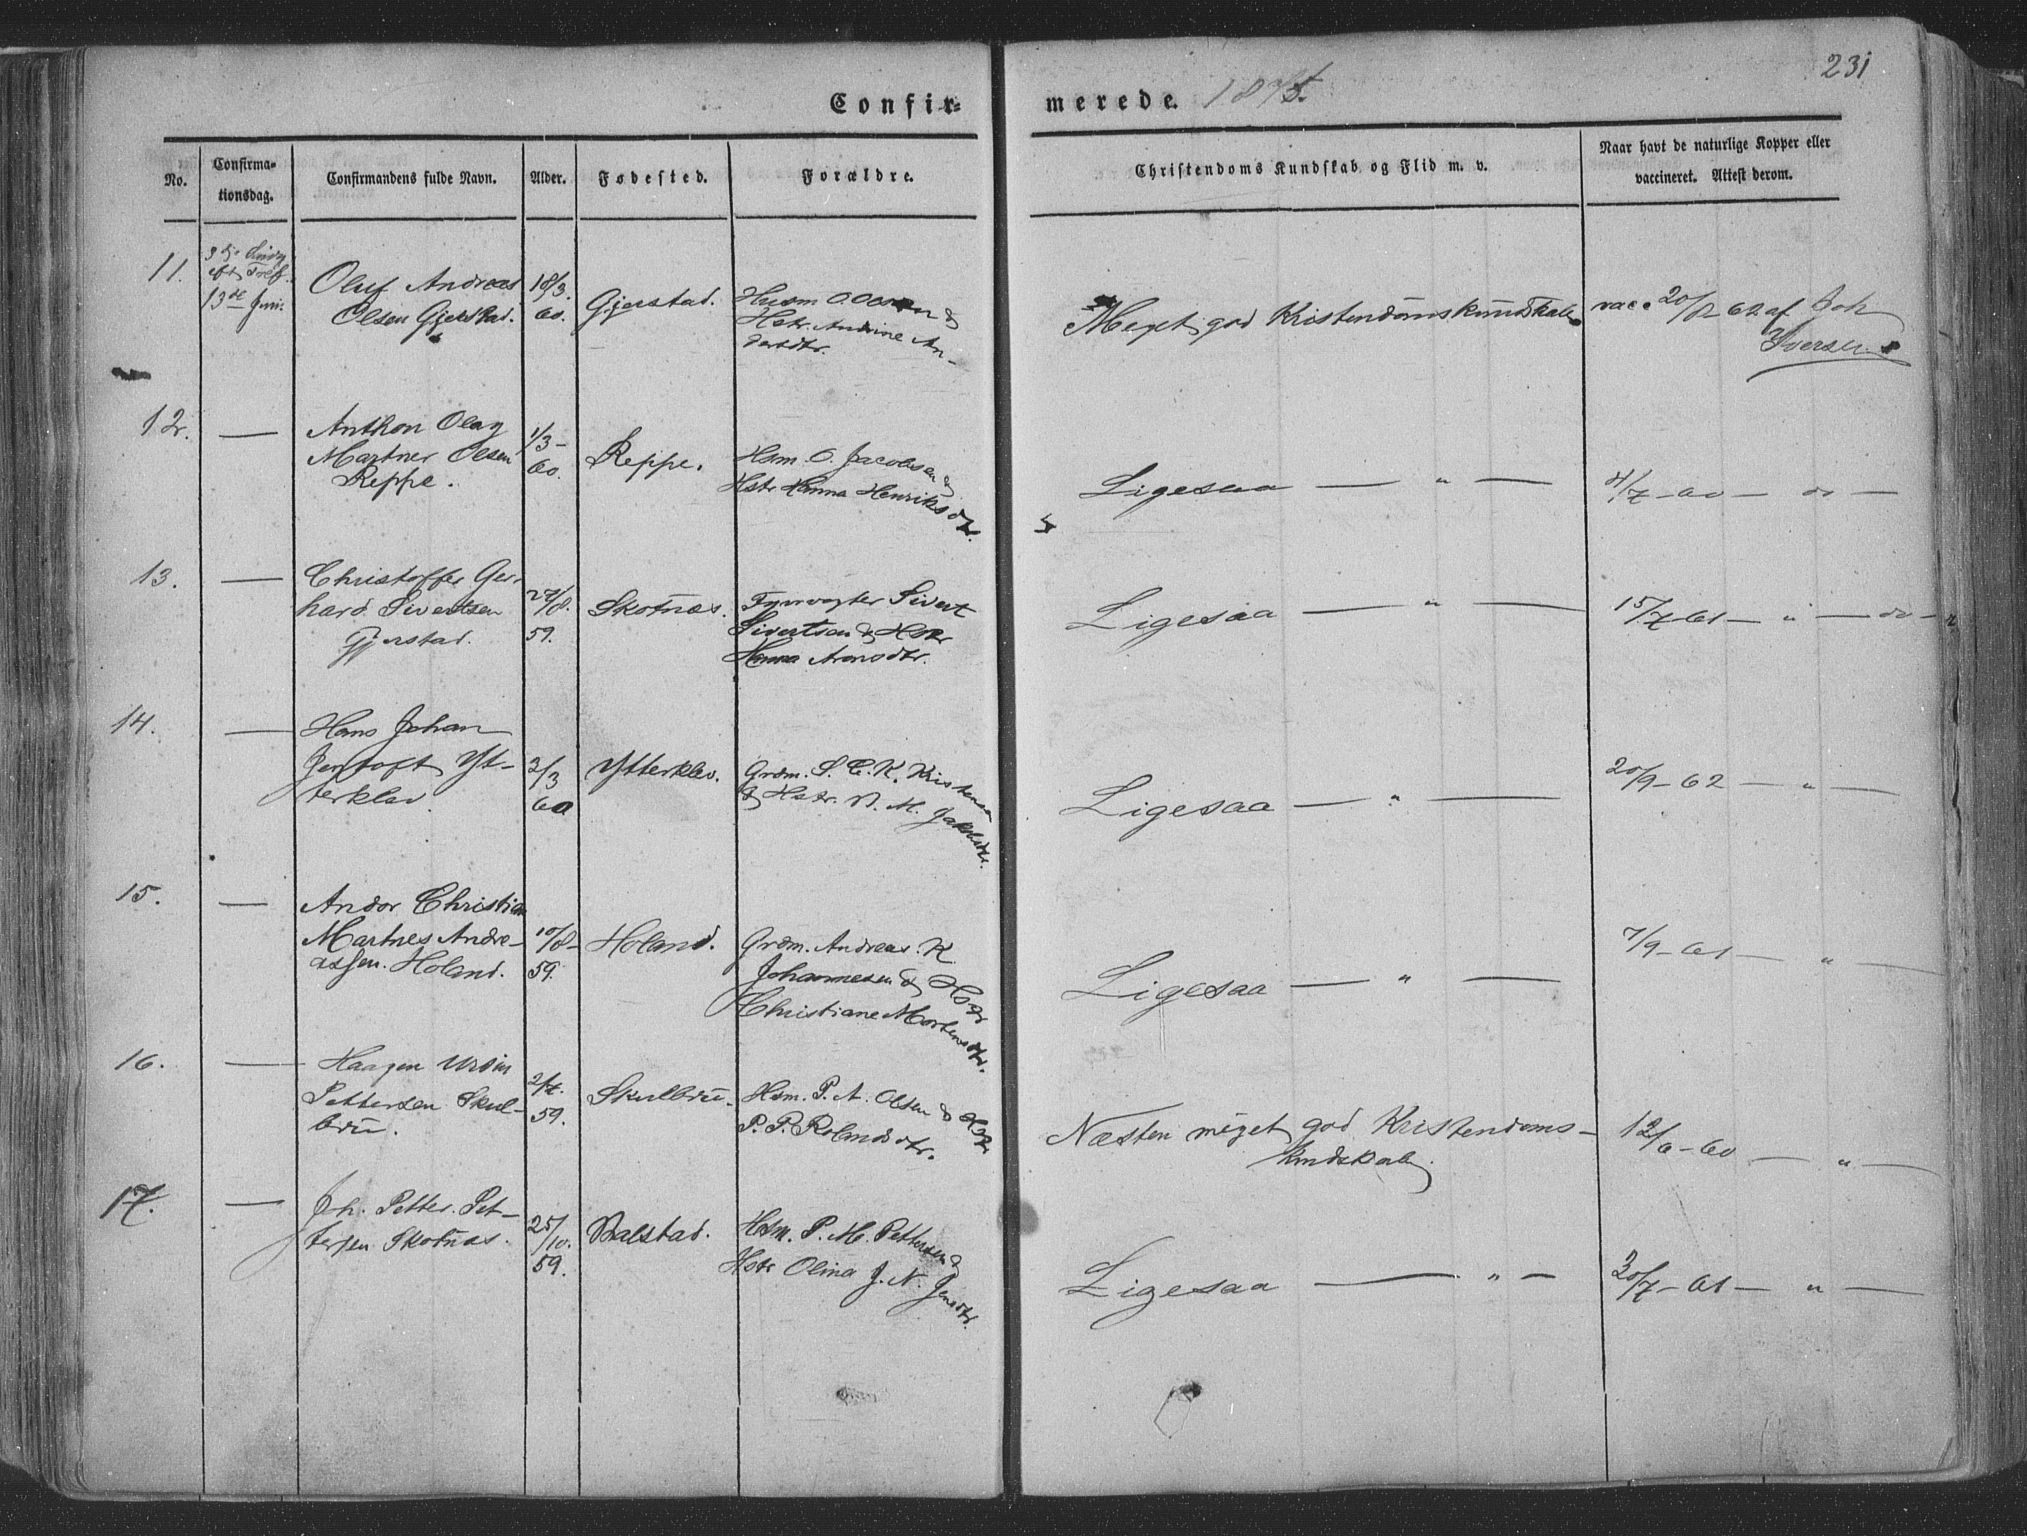 231
Confir-
merede. 1875.
No.
Confirma-
tionsdag.
Confirmandens fulde Navn.
Alder.
Fødested.
Forældre.
Christendoms Kundskab og Flid m. v.
Naar havt de naturlige Kopper eller
vaccineret. Attest derom.
11.
3de Søndg
eft. Tref.
13de Juni.
Oluf Andreas
Olsen Gjerstad.
18/3.
60.
Gjerstad.
Husm O Olsen &
Hstr. Andrine An-
dersdtr.
Meget god Kristendomskundskab
vacc 20/7 62 af Joh
Iversen
12.
—
Anthon Olag
Martner Olsen
Reppe.
1/3-
60.
Reppe.
Hsm. O. Jacobsen &
Hstr Hanna Henriksdtr.
Ligesaa — " —
4/7 - 60 — do —
13.
—
Christoffer Ger-
hard Sivertsen
Gjerstad.
27/8.
59.
Skotnæs.
Fyrvogter Sivert
Sivertsen & Hstr
Hanna Arnsdtr.
Ligesaa — " —
15/7 61 — " — do — "
14.
—
Hans Johan
Jentoft Yt-
terklev.
2/3
60
Ytterklev.
Grdm. S. C. K. Kristensen
& Hstr. N. M. Jakobsdtr.
Ligesaa — " —
20/9 - 62 — " —
15.
—
Andor Christian
Martnes Andre-
assen Holand.
10/8-
59.
Holand.
Grdm. Andreas K
Johannesen & Hstr
Christiane Mortensdtr.
Ligesaa — " —
7/9 - 61 — " —
16.
—
Haagen Ursin
Pettersen Skul-
bru.
2/7.
59.
Skulbru.
Hsm. P. A. Olsen & Hstr
P. P. Rolandsdtr.
Næsten meget god Kristendoms-
kundskab
12/6 - 60 — " —
17.
—
Joh. Petter Pet-
tersen Skotnæs.
25/10.
59.
Balstad.
Hsm. P. M. Pettersen &
Hstr Olina J. N. Jensdtr.
Ligesaa — " —
30/7 - 61 — " —